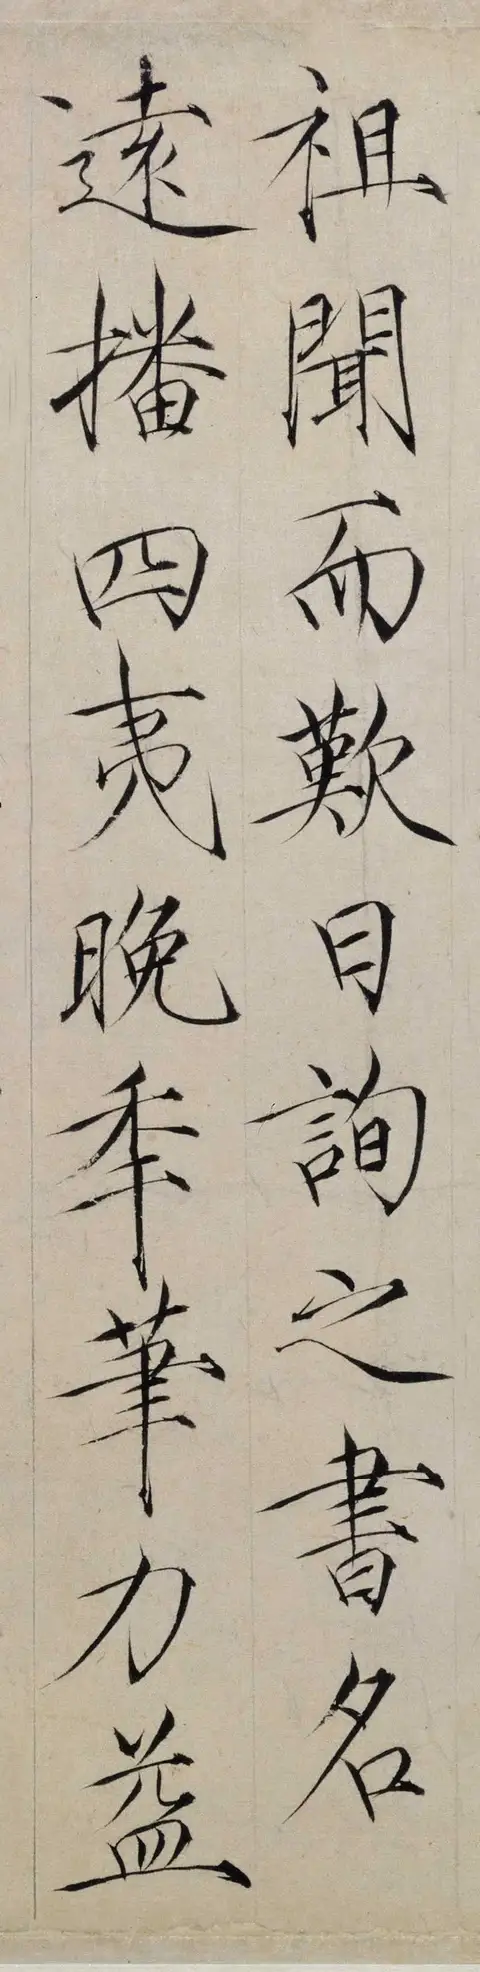 祖聞而歎曰詢之書名
遠播四夷晚季筆力益